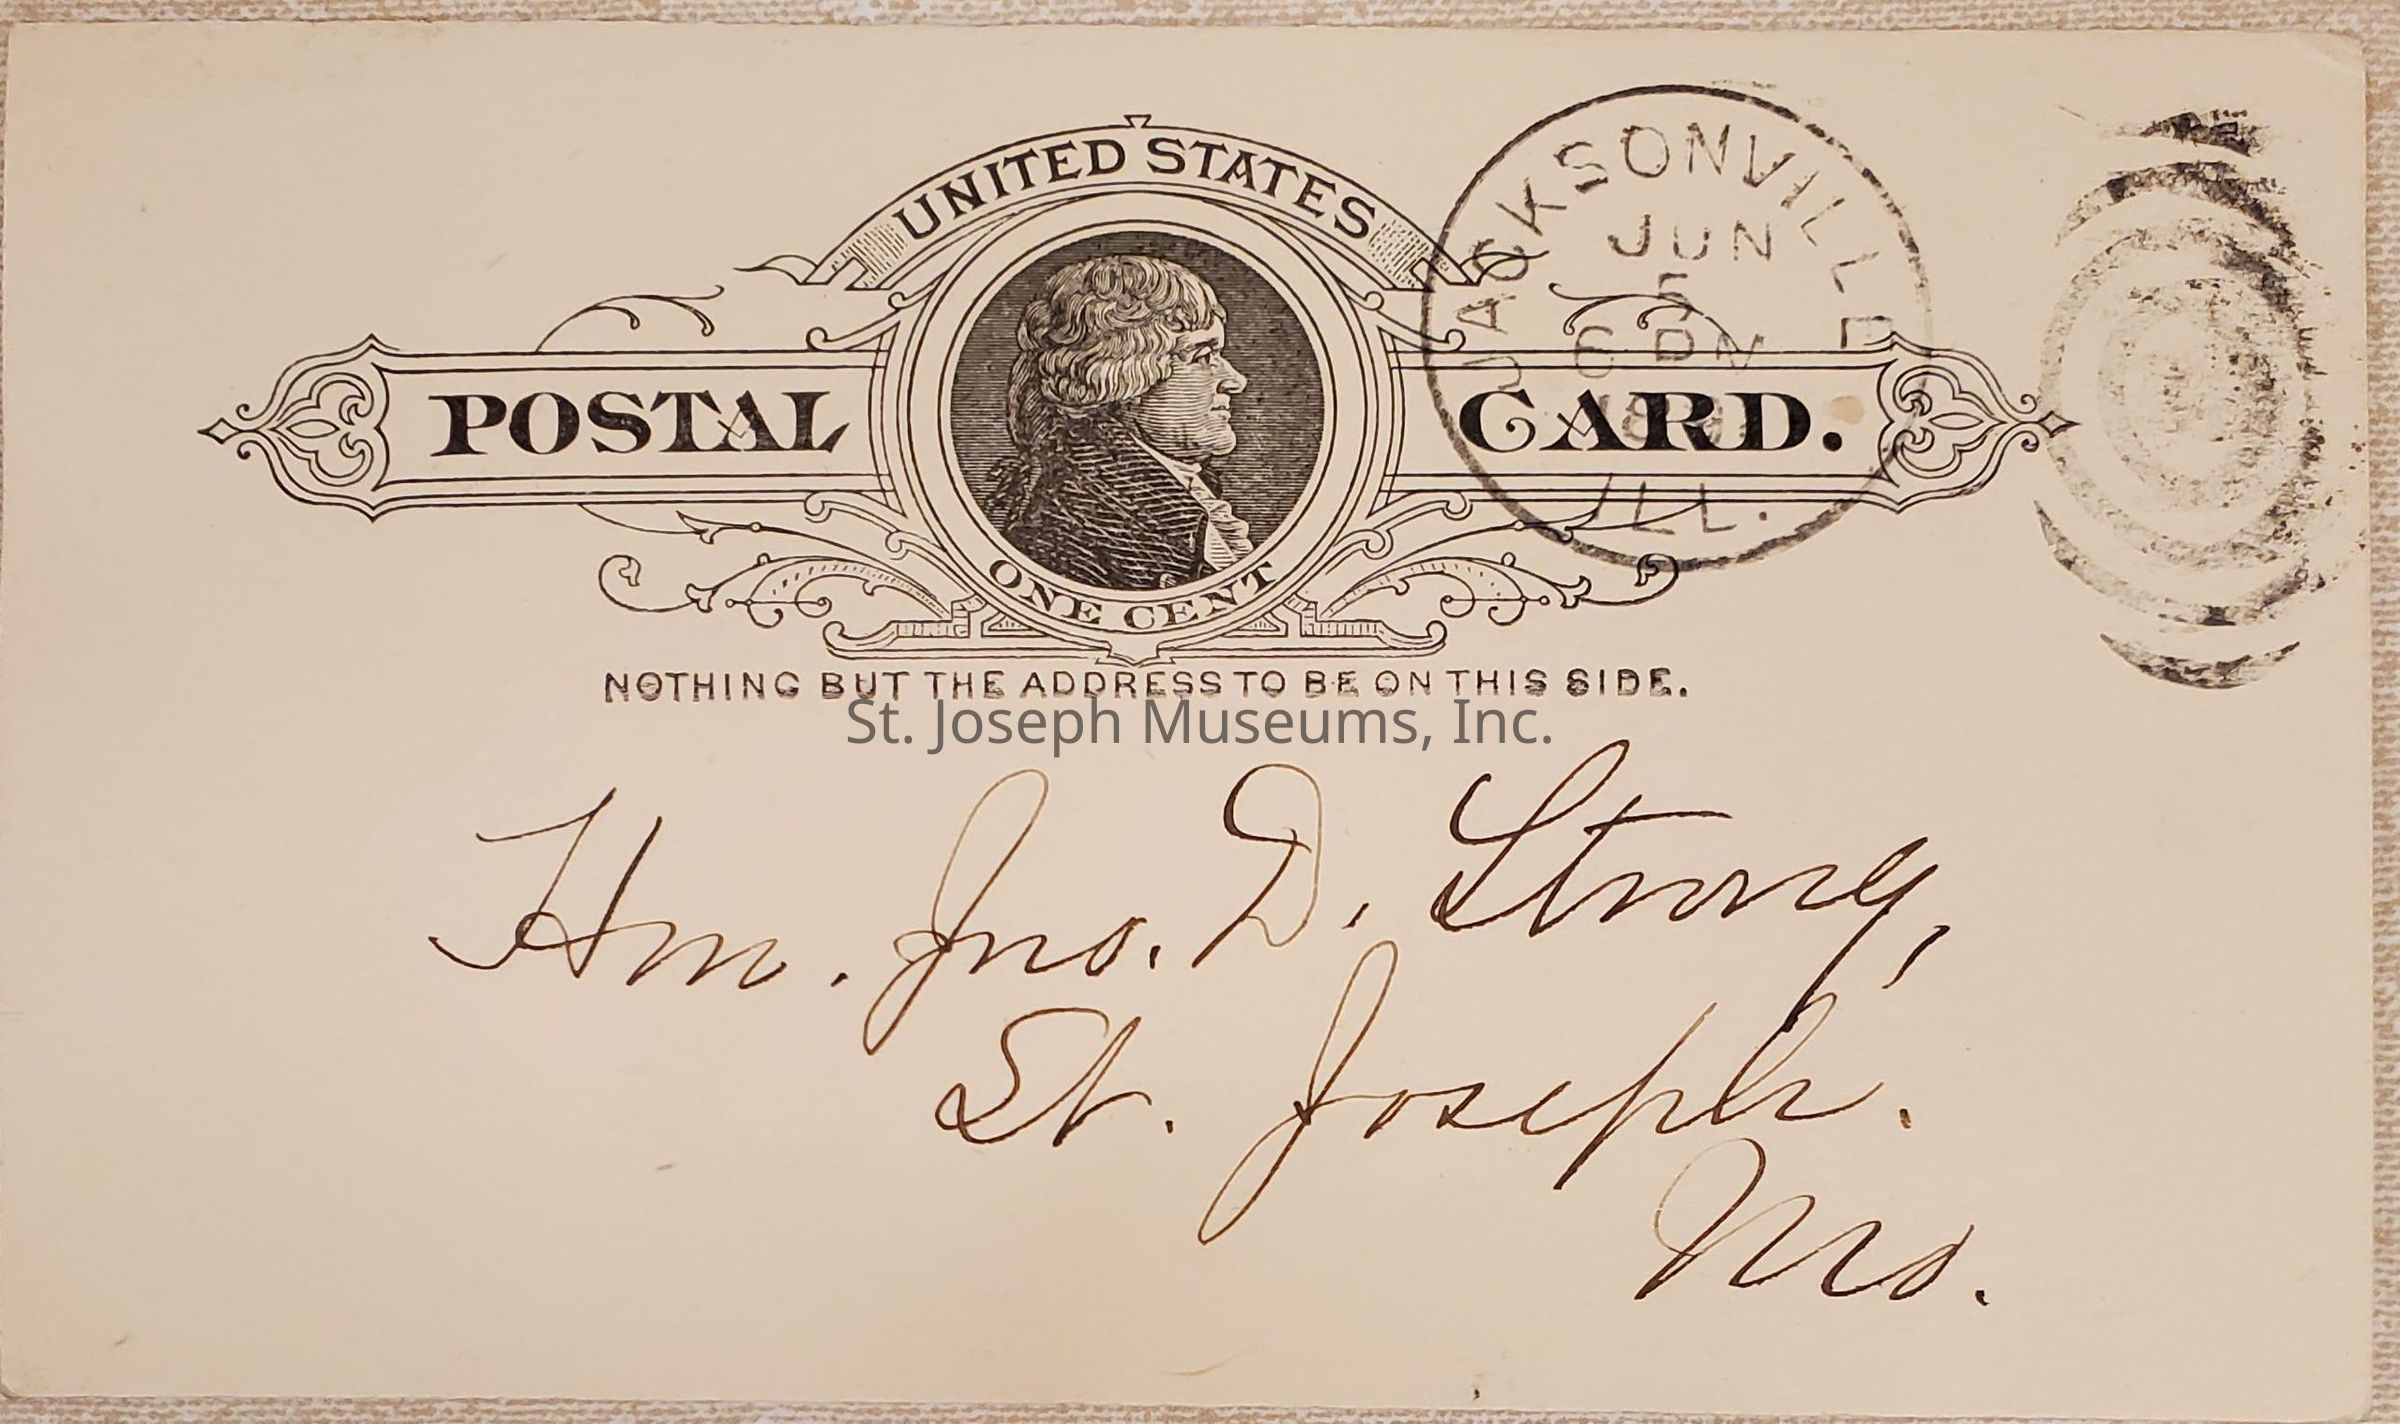 UNITED STATES
POSTAL CARD.
ONE CENT
JACKSONVILLE
JUN
5
6 PM
ILL.
NOTHING BUT THE ADDRESS TO BE ON THIS SIDE.
St. Joseph Museums, Inc.
Hon. Jno. D. Strong,
St. Joseph.
Mo.